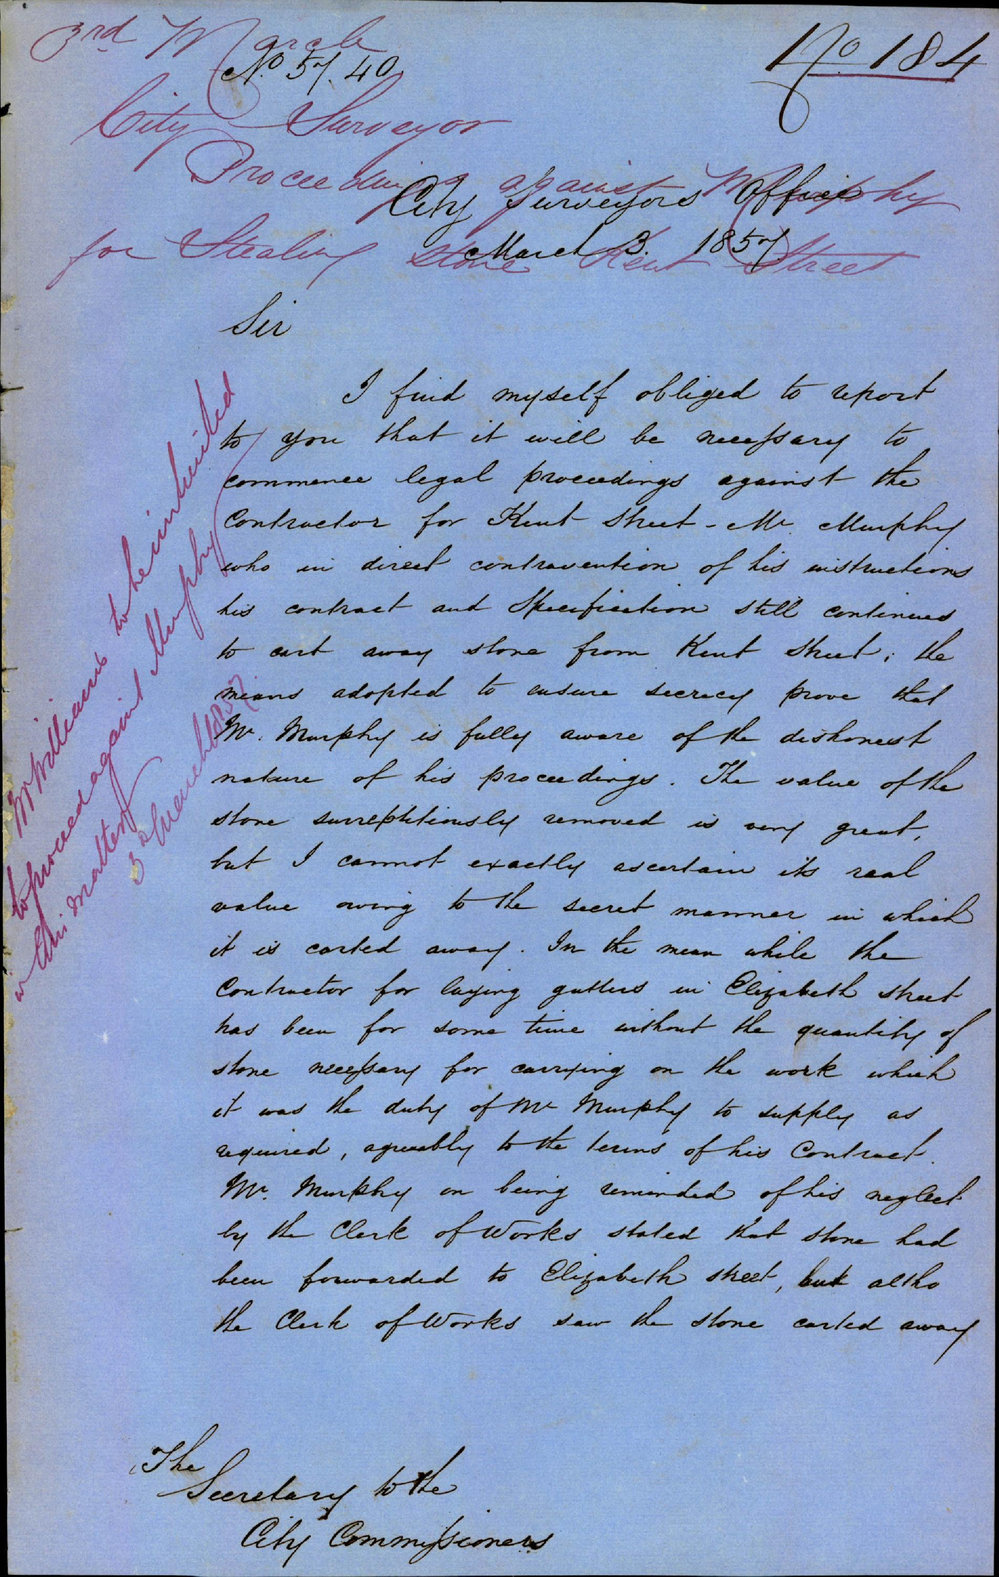 3rd March
No. 57.40
No 184
City Surveyor
Proceeding against Murphy
City Surveyors Office
for Stealing stone Kent Street
March 3. 1857
Sir
I find myself obliged to report
to you that it will be necessary to
commence legal proceedings against the
Contractor for Kent Street - Mr. Murphy
who in direct contravention of his instructions
his contract and Specification still continues
to cart away stone from Kent Street; the
means adopted to ensure secrecy prove that
Mr. Murphy is fully aware of the dishonest
nature of his proceedings. The value of the
stone surreptitiously removed is very great,
but I cannot exactly ascertain its real
value owing to the secret manner in which
it is carted away. In the mean while the
Contractor for laying gutters in Elizabeth street
has been for some time without the quantity of
stone necessary for carrying on the work which
it was the duty of Mr Murphy to supply as
required, agreeably to the terms of his Contract.
Mr. Murphy on being reminded of his neglect
by the Clerk of Works stated that stone had
been forwarded to Elizabeth street, but altho
the Clerk of Works saw the stone carted away
The
Secretary to the
City Commissioners
Mr Williams to be instructed
to proceed against Murphy
in this matter
3d March 1857